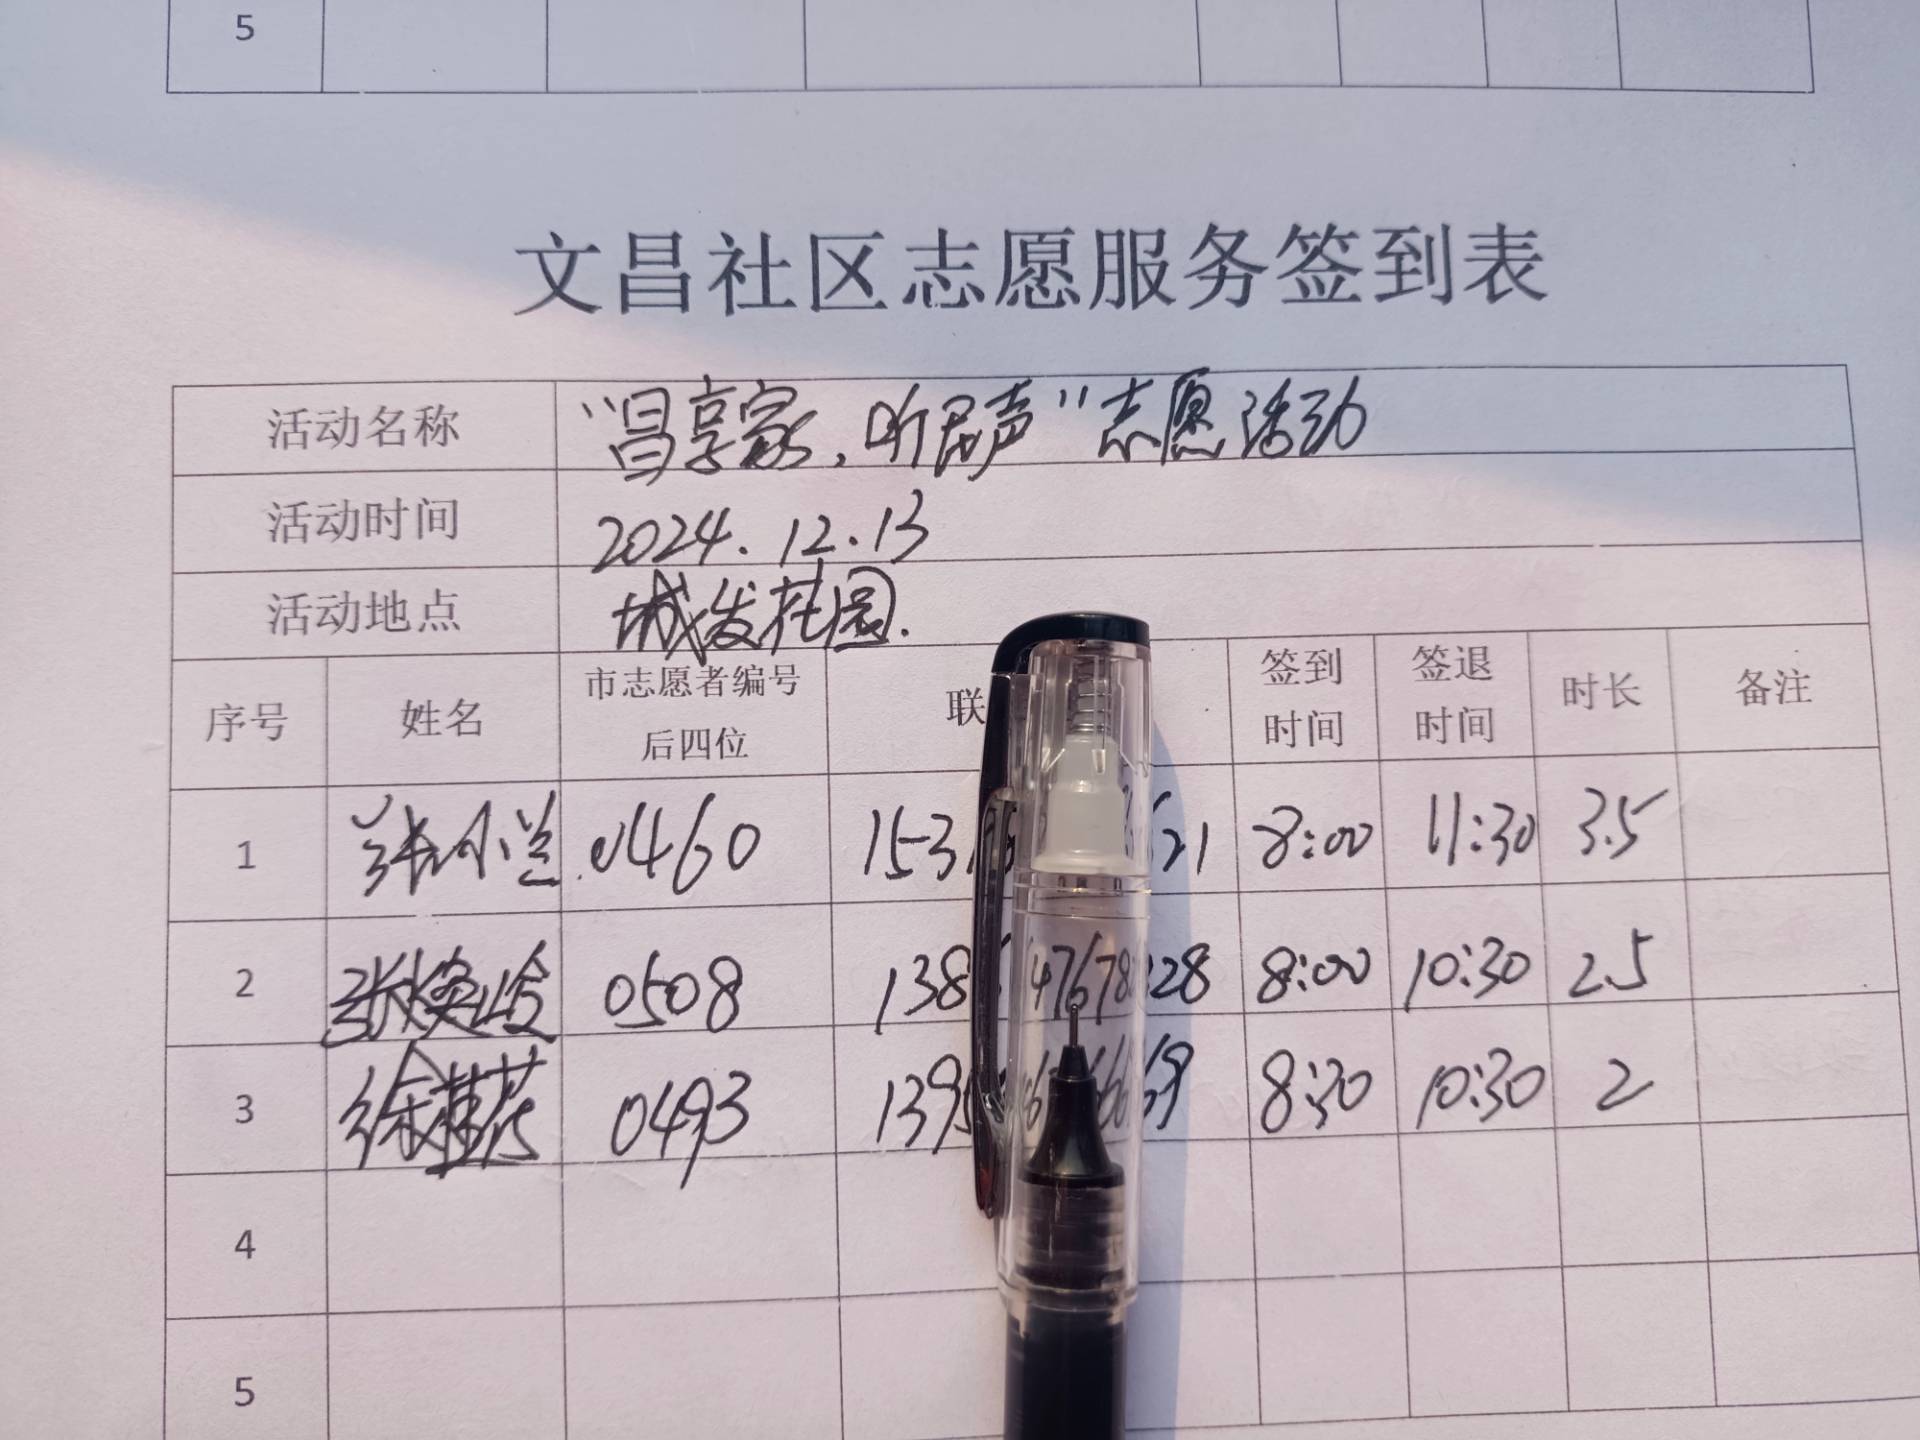 5
文昌社区志愿服务签到表
活动名称 “昌享家,听民声”志愿活动
活动时间 2024.12.13
活动地点 城发花园.
序号 姓名 市志愿者编号后四位 联 签到时间 签退时间 时长 备注
1 张小兰 0460 153 21 8:00 11:30 3.5
2 0508 138 4767 28 8:00 10:30 2.5
3 徐桂花 0493 139 69 8:30 10:30 2
4
5